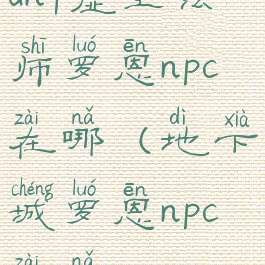 shī luó ēn
师罗恩npc
zài nǎ dì xià
在哪(地下
chéng luó ēn
城罗恩npc
zài nǎ